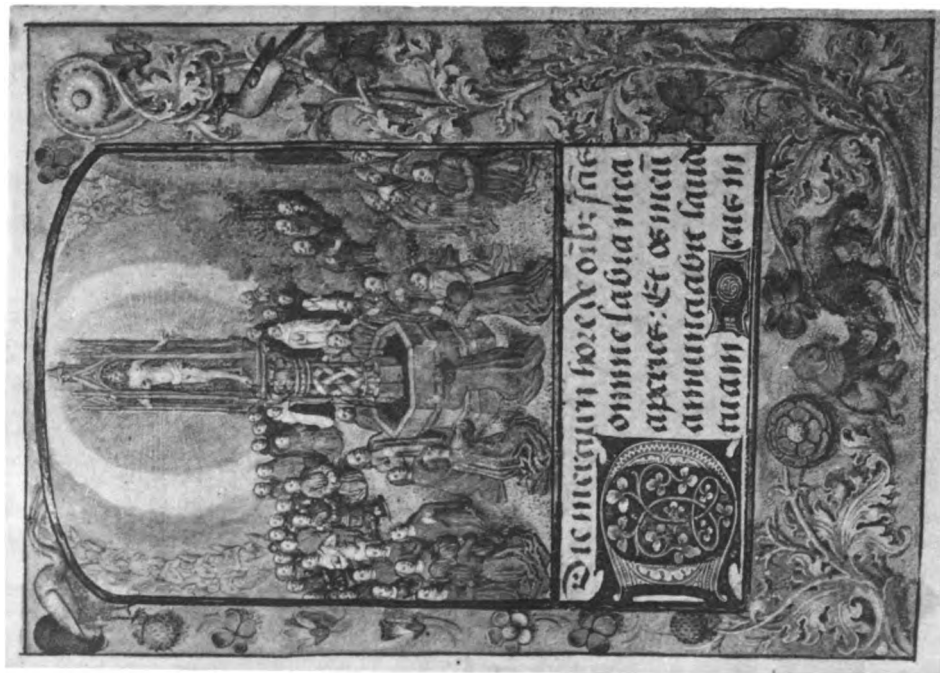 Die mercurij hore de oib; scis
omine labia mea
aperies: Et os meū
annunciabit laude
tuam eus in